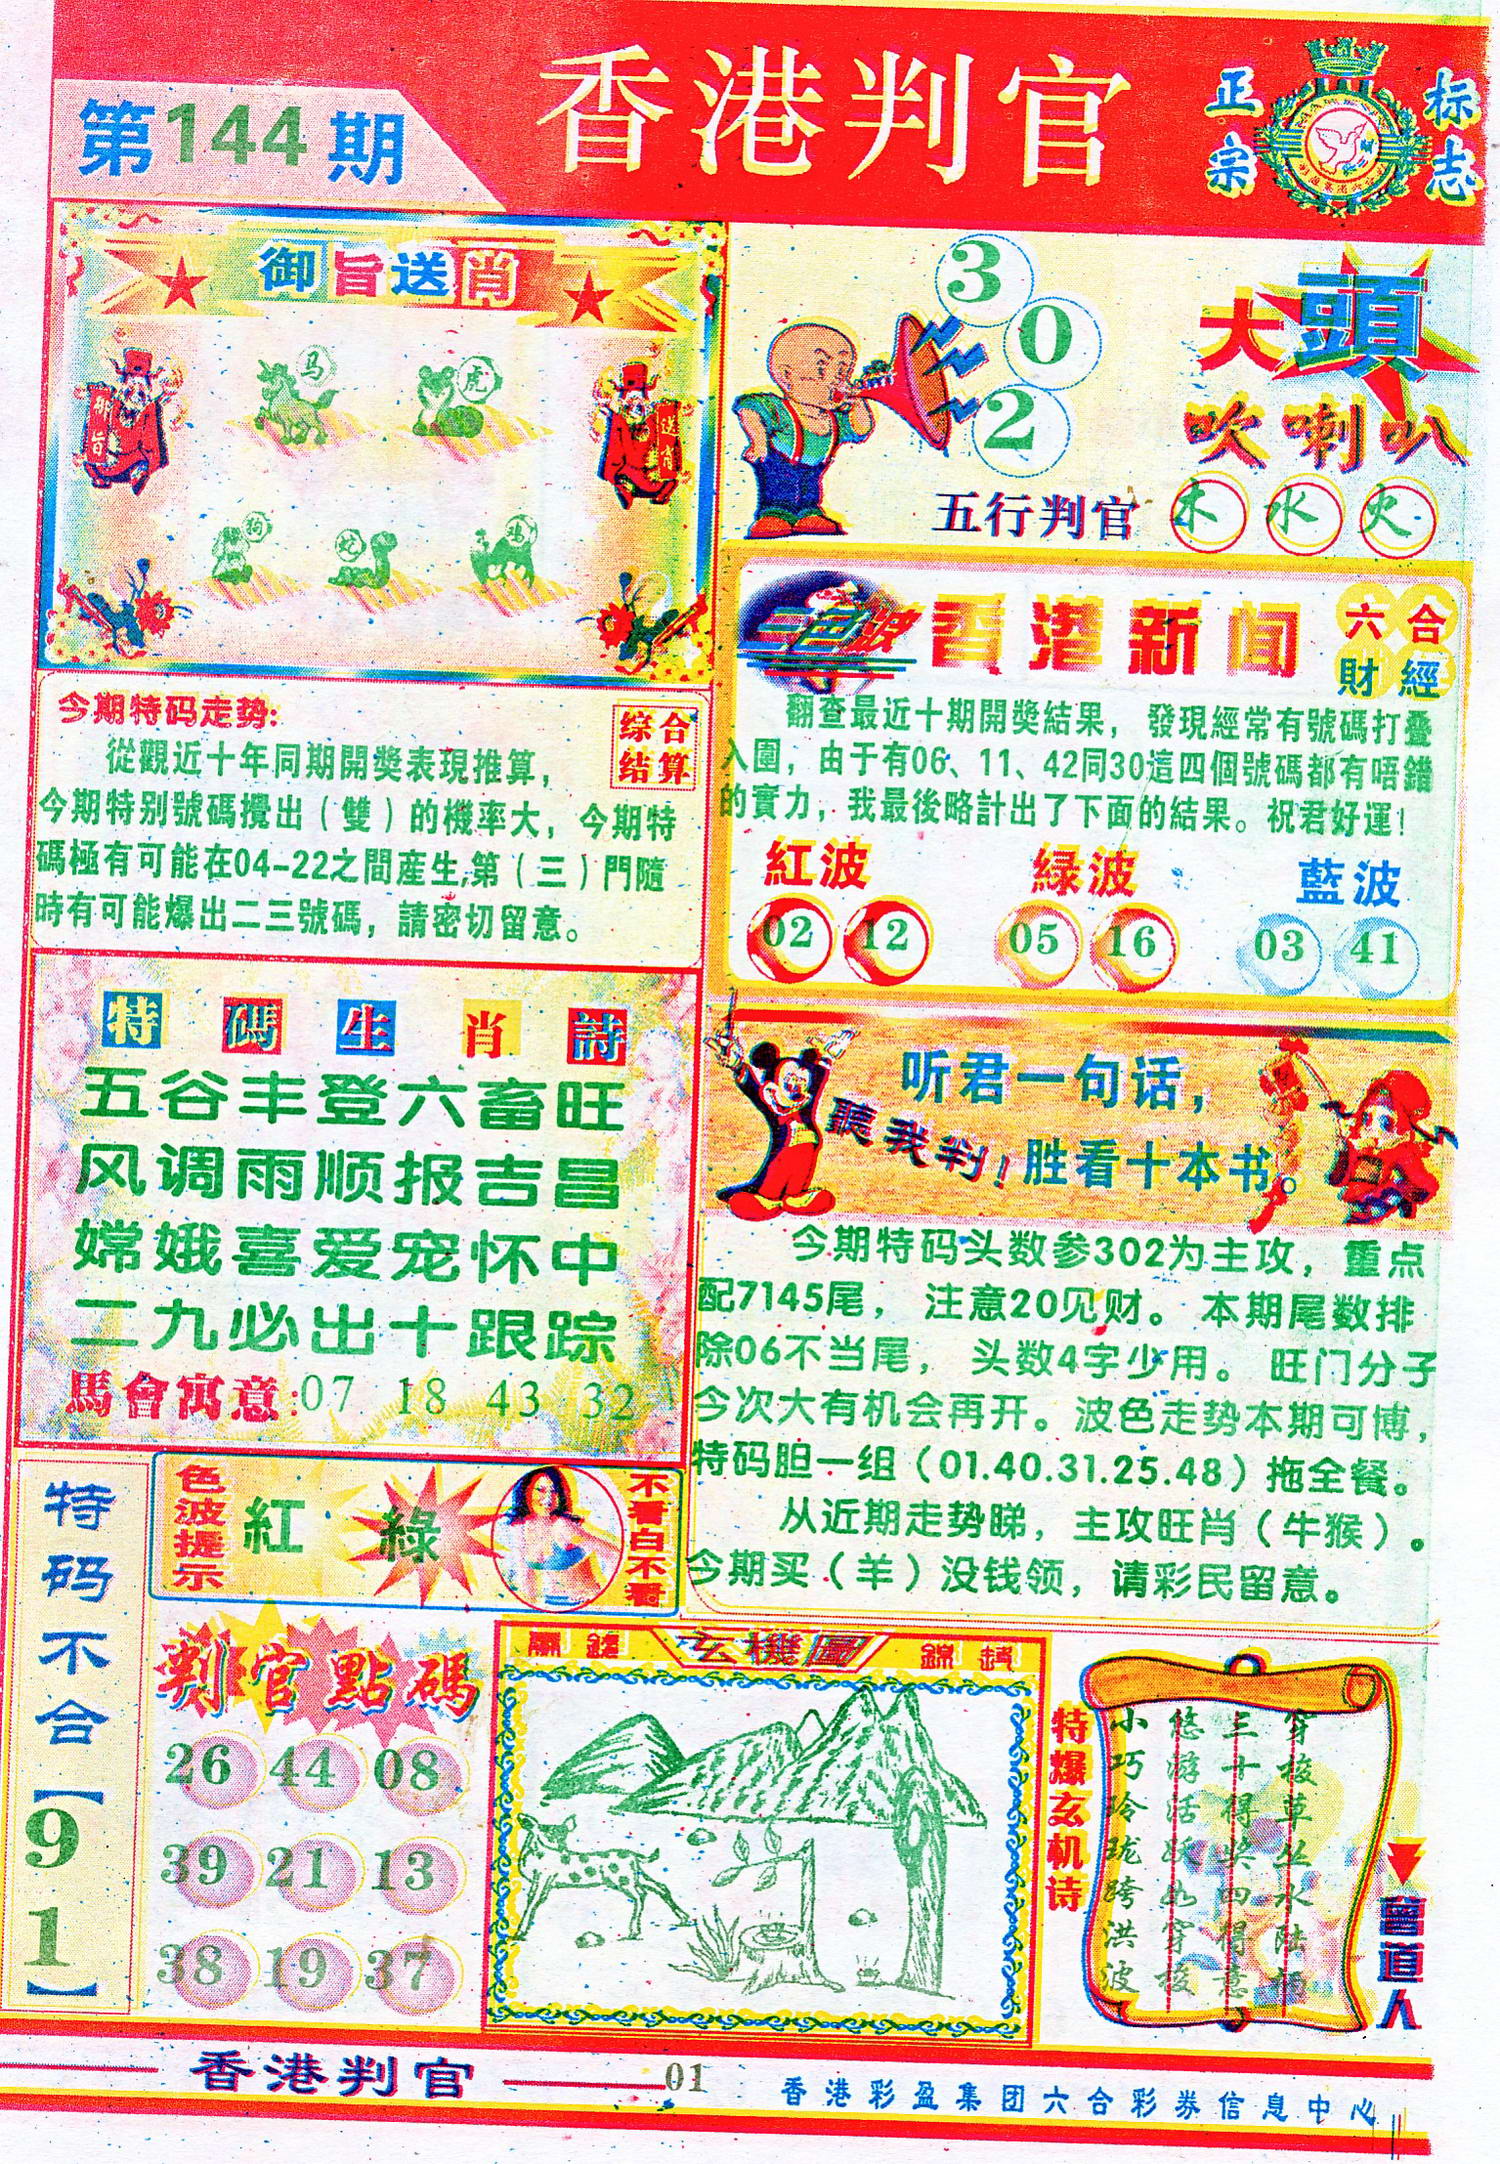 第144期
香港判官
正宗
标志
御旨送肖
马
虎
御旨
送肖
狗
蛇
鸡
3
0
2
大頭
吹喇叭
五行判官 木 水 火
今期特码走势:
综合
结算
從觀近十年同期開獎表現推算，
今期特别號碼攪出（雙）的機率大，今期特
碼極有可能在04-22之間産生,第（三）門隨
時有可能爆出二三號碼，請密切留意。
三色波
香港新闻
六合
財經
翻查最近十期開獎結果，發現經常有號碼打疊
入圍，由于有06、11、42同30這四個號碼都有唔錯
的實力，我最後略計出了下面的結果。祝君好運！
紅波 緑波 藍波
02 12 05 16 03 41
特碼生肖詩
五谷丰登六畜旺
风调雨顺报吉昌
嫦娥喜爱宠怀中
二九必出十跟踪
馬會寓意:07 18 43 32
听君一句话，
聽我判！
胜看十本书。
今期特码头数参302为主攻，重点
配7145尾，注意20见财。本期尾数排
除06不当尾，头数4字少用。旺门分子
今次大有机会再开。波色走势本期可博，
特码胆一组（01.40.31.25.48）拖全餐。
从近期走势睇，主攻旺肖（牛猴）。
今期买（羊）没钱领，请彩民留意。
特码不合【91】
色波提示
紅 綠
不看白不看
判官點碼
26 44 08
39 21 13
38 19 37
玄機圖
特爆玄机诗
小巧玲珑跨洪波
悠游活跃如穿梭
三十得奖四得意
穿梭草丛水陆
曾道人
香港判官
01
香港彩盈集团六合彩券信息中心